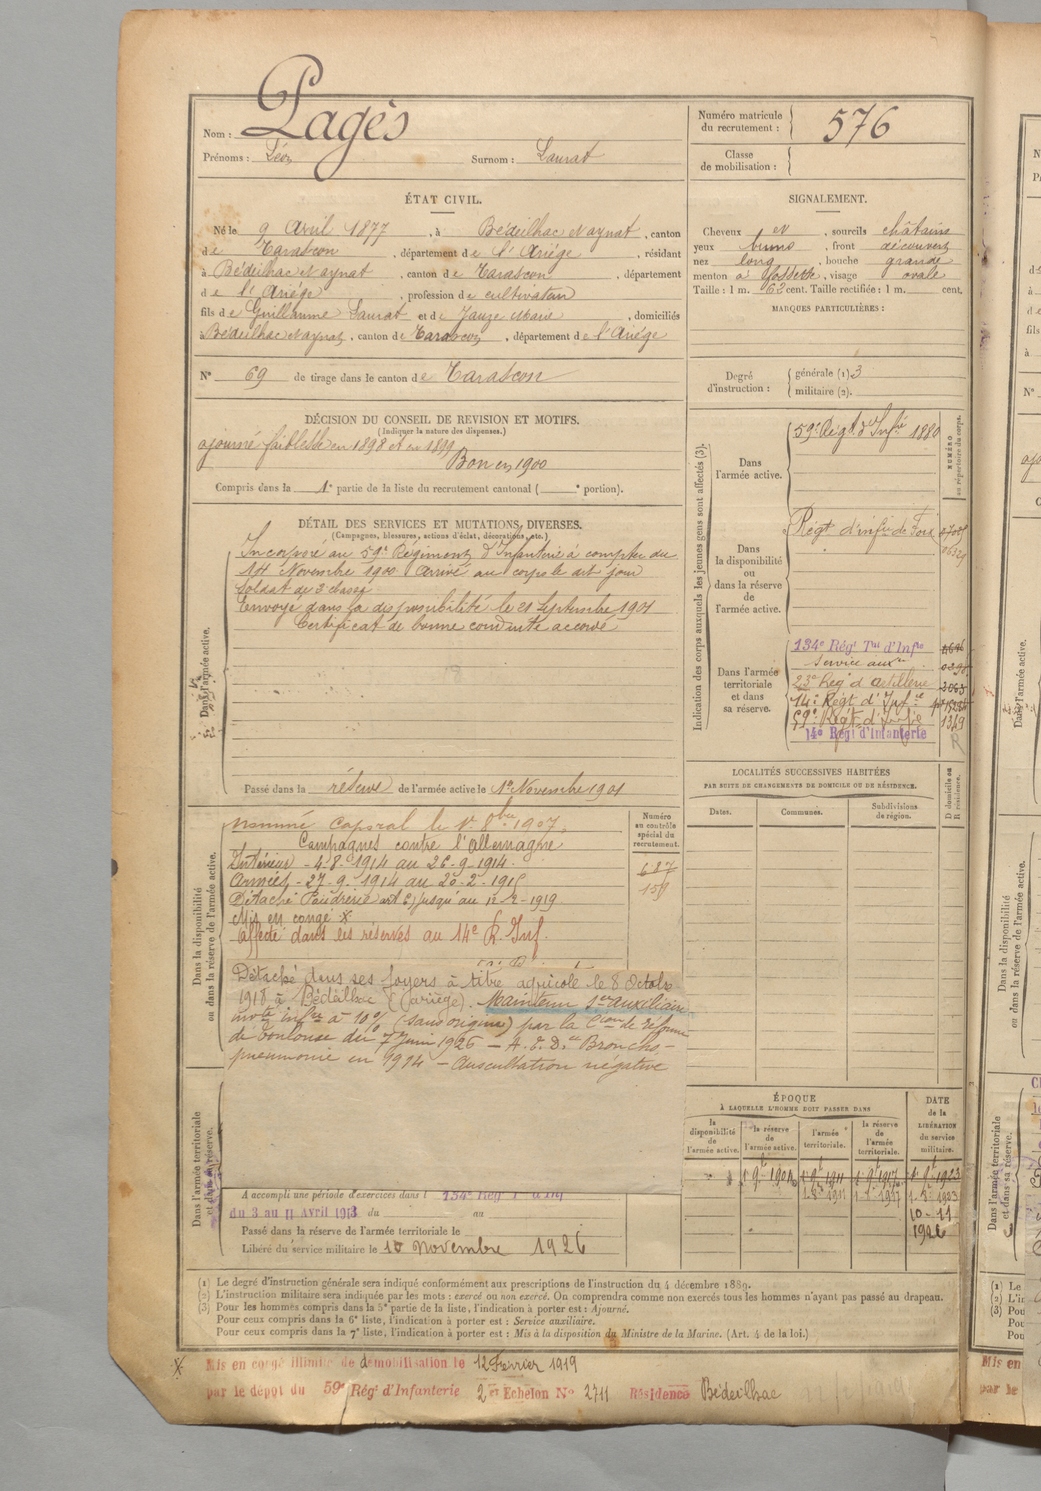 Nom : Pagès
Prénoms : Léon Surnom : Laurat
Numéro matricule du recrutement : 576
Classe de mobilisation :
ÉTAT CIVIL.
Né le 9 Avril 1877, à Bédeilhac Naynat, canton
de Tarascon, département de l'Ariége, résidant
à Bédeilhac Naynat, canton de Tarascon, département
de l'Ariége, profession de cultivateur
fils de Guillaume Laurat et de Jauze Marie, domiciliés
Bédeilhac Naynat, canton de Tarascon, département de l'Ariége
N° 69 de tirage dans le canton de Tarascon
SIGNALEMENT.
Cheveux et, sourcils châtains
yeux bruns, front découvert
nez long, bouche grande
menton à fossette, visage ovale
Taille : 1 m. 62 cent. Taille rectifiée : 1 m. cent.
MARQUES PARTICULIÈRES :
Degré d'instruction : générale (1) 3
militaire (2).
DÉCISION DU CONSEIL DE REVISION ET MOTIFS.
(Indiquer la nature des dispenses.)
ajourné faiblesse en 1898 et en 1899
Bon en 1900
Compris dans la 1e partie de la liste du recrutement cantonal ( e portion).
DÉTAIL DES SERVICES ET MUTATIONS DIVERSES.
(Campagnes, blessures, actions d'éclat, décorations, etc.)
Dans l'armée active.
Incorporé au 59e Régiment d'Infanterie à compter du
14 Novembre 1900 Arrivé au corps le dit jour
Soldat de 2e classe
Envoyé dans la disponibilité le 21 Septembre 1901
Certificat de bonne conduite accordé
Passé dans la réserve de l'armée active le 1er Novembre 1901
Indication des corps auxquels les jeunes gens sont affectés (3).
NUMÉRO au répertoire du corps.
Dans l'armée active.
59e Régt d'Infie 1880
Dans la disponibilité ou dans la réserve de l'armée active.
Régt d'infie de Foix
Dans l'armée territoriale et dans sa réserve.
134e Régt Tal d'Infie
Service auxre
23e Régt d'artillerie
14e Régt d'Infie
59e Régt d'Infie 1349
14e Régt d'Infanterie
LOCALITÉS SUCCESSIVES HABITÉES
PAR SUITE DE CHANGEMENTS DE DOMICILE OU DE RÉSIDENCE.
Dates. Communes. Subdivisions de région. D domicile ou R résidence.
Dans la disponibilité ou dans la réserve de l'armée active.
Numéro au contrôle spécial du recrutement.
687
159
Nommé caporal le 1er 8bre 1907.
Campagnes contre l'Allemagne
Intérieur - 4-8-1914 au 26-9-1914.
Armées - 27-9-1914 au 20-2-1915
Détaché Poudrerie jusqu'au 12-2-1919
Mis en congé x
Affecté dans les réserves au 14e R. Inf.
Détaché dans ses foyers à titre agricole le 8 Octobre
1918 à Bédeilhac (Ariège). Maintenu Sce auxiliaire
invté infre à 10% (sans origine) par la Cion de réforme
de Toulouse du 7 Juin 1926 - A. E. D. "Broncho-
pneumonie en 1914 - Auscultation négative
Dans l'armée territoriale et dans sa réserve.
A accompli une période d'exercices dans l 134e Régt T. d'Inf
du 3 au 11 Avril 1913 du au
Passé dans la réserve de l'armée territoriale le
Libéré du service militaire le 10 Novembre 1926
ÉPOQUE
À LAQUELLE L'HOMME DOIT PASSER DANS
la disponibilité de l'armée active. la réserve de l'armée active. l'armée territoriale. la réserve de l'armée territoriale.
DATE de la LIBÉRATION du service militaire.
10-11
1926
(1) Le degré d'instruction générale sera indiqué conformément aux prescriptions de l'instruction du 4 décembre 1889.
(2) L'instruction militaire sera indiquée par les mots : exercé ou non exercé. On comprendra comme non exercés tous les hommes n'ayant pas passé au drapeau.
(3) Pour les hommes compris dans la 5e partie de la liste, l'indication à porter est : Ajourné.
Pour ceux compris dans la 6e liste, l'indication à porter est : Service auxiliaire.
Pour ceux compris dans la 7e liste, l'indication à porter est : Mis à la disposition du Ministre de la Marine. (Art. 4 de la loi.)
x Mis en congé illimité de démobilisation le 12 Fevrier 1919
par le dépôt du 59e Rég! d'Infanterie 2e Echelon N° 2711 Résidence Bédeilhac